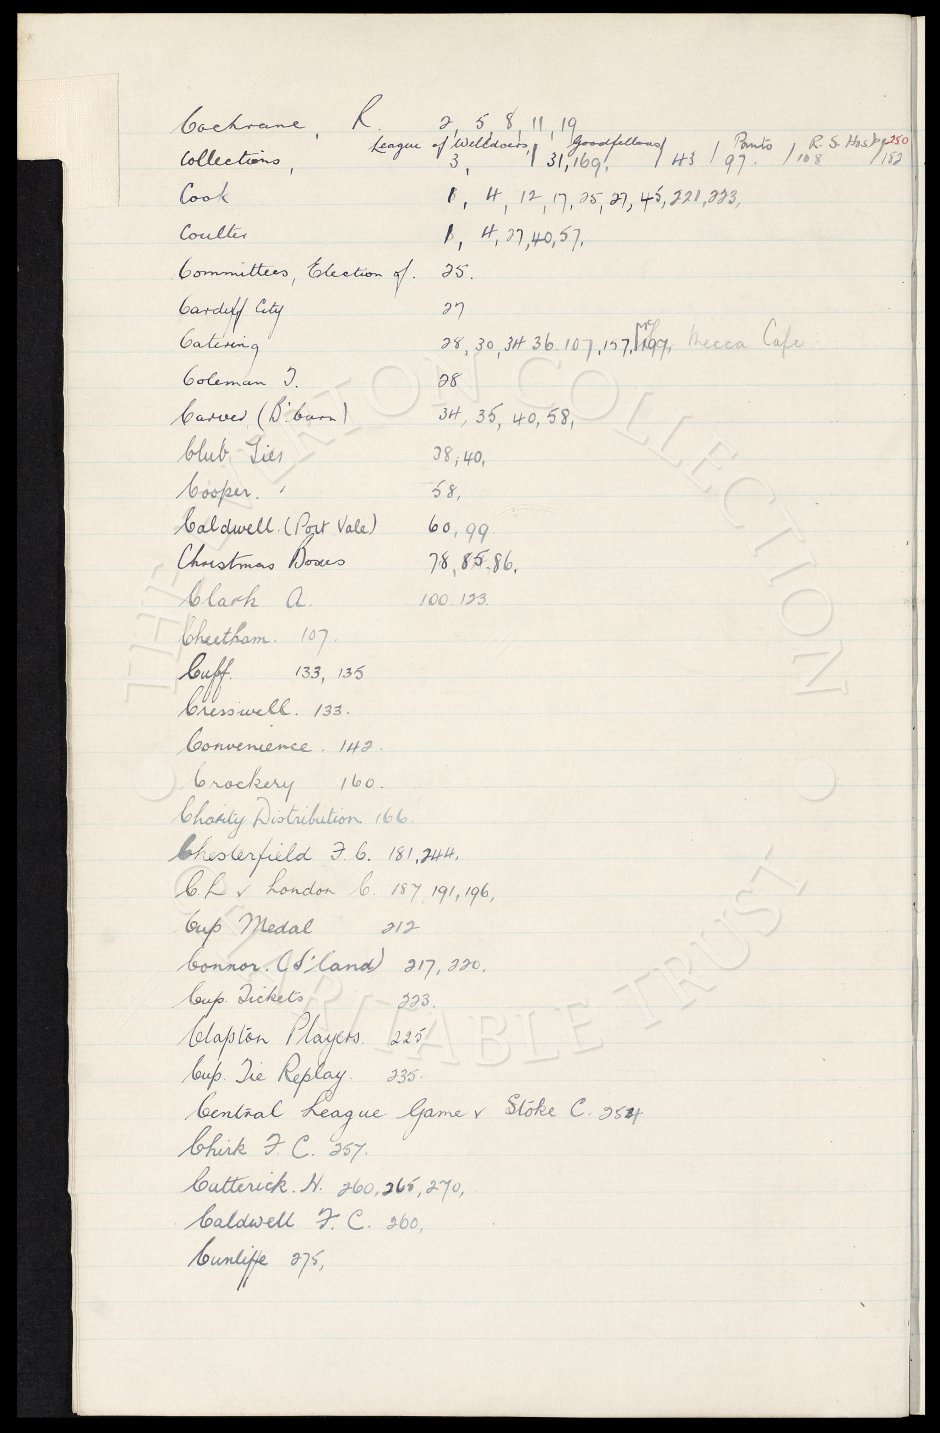 Cochrane, R. 2, 5, 8, 11, 19
League of Welldoers, / Goodfellows / Panto / R. S. Hosp 250
Collections, 3, / 31, 169, / 43 / 97. / 108 / 182
Cook 1, 4, 12, 17, 25, 27, 45, 221, 223,
Coulter 1, 4, 27, 40, 57,
Committees, Election of. 25.
Cardiff City 27
Catering 28, 30, 34 36. 107, 157, 197, Mecca Cafe
Coleman T. 28
Carver (B'burn) 34, 35, 40, 58,
Club Ties 38, 40,
Cooper. 58,
Caldwell. (Port Vale) 60, 99.
Christmas Boxes 78, 85-86,
Clark A. 100. 123.
Cheetham. 107.
Cuff. 133, 135
Cresswell. 133.
Convenience. 142.
Crockery 160.
Charity Distribution 166.
Chesterfield F. C. 181, 244.
C. L v London C. 187, 191, 196,
Cup Medal 212
Connor. (S'land) 217, 220.
Cup. Tickets 223.
Clapton Players. 225
Cup. Tie Replay. 235.
Central League Game v Stoke C. 254
Chirk F. C. 257.
Catterick. H. 260, 265, 270,
Caldwell F. C. 260,
Cunliffe 275,
© THE EVERTON COLLECTION CHARITABLE TRUST